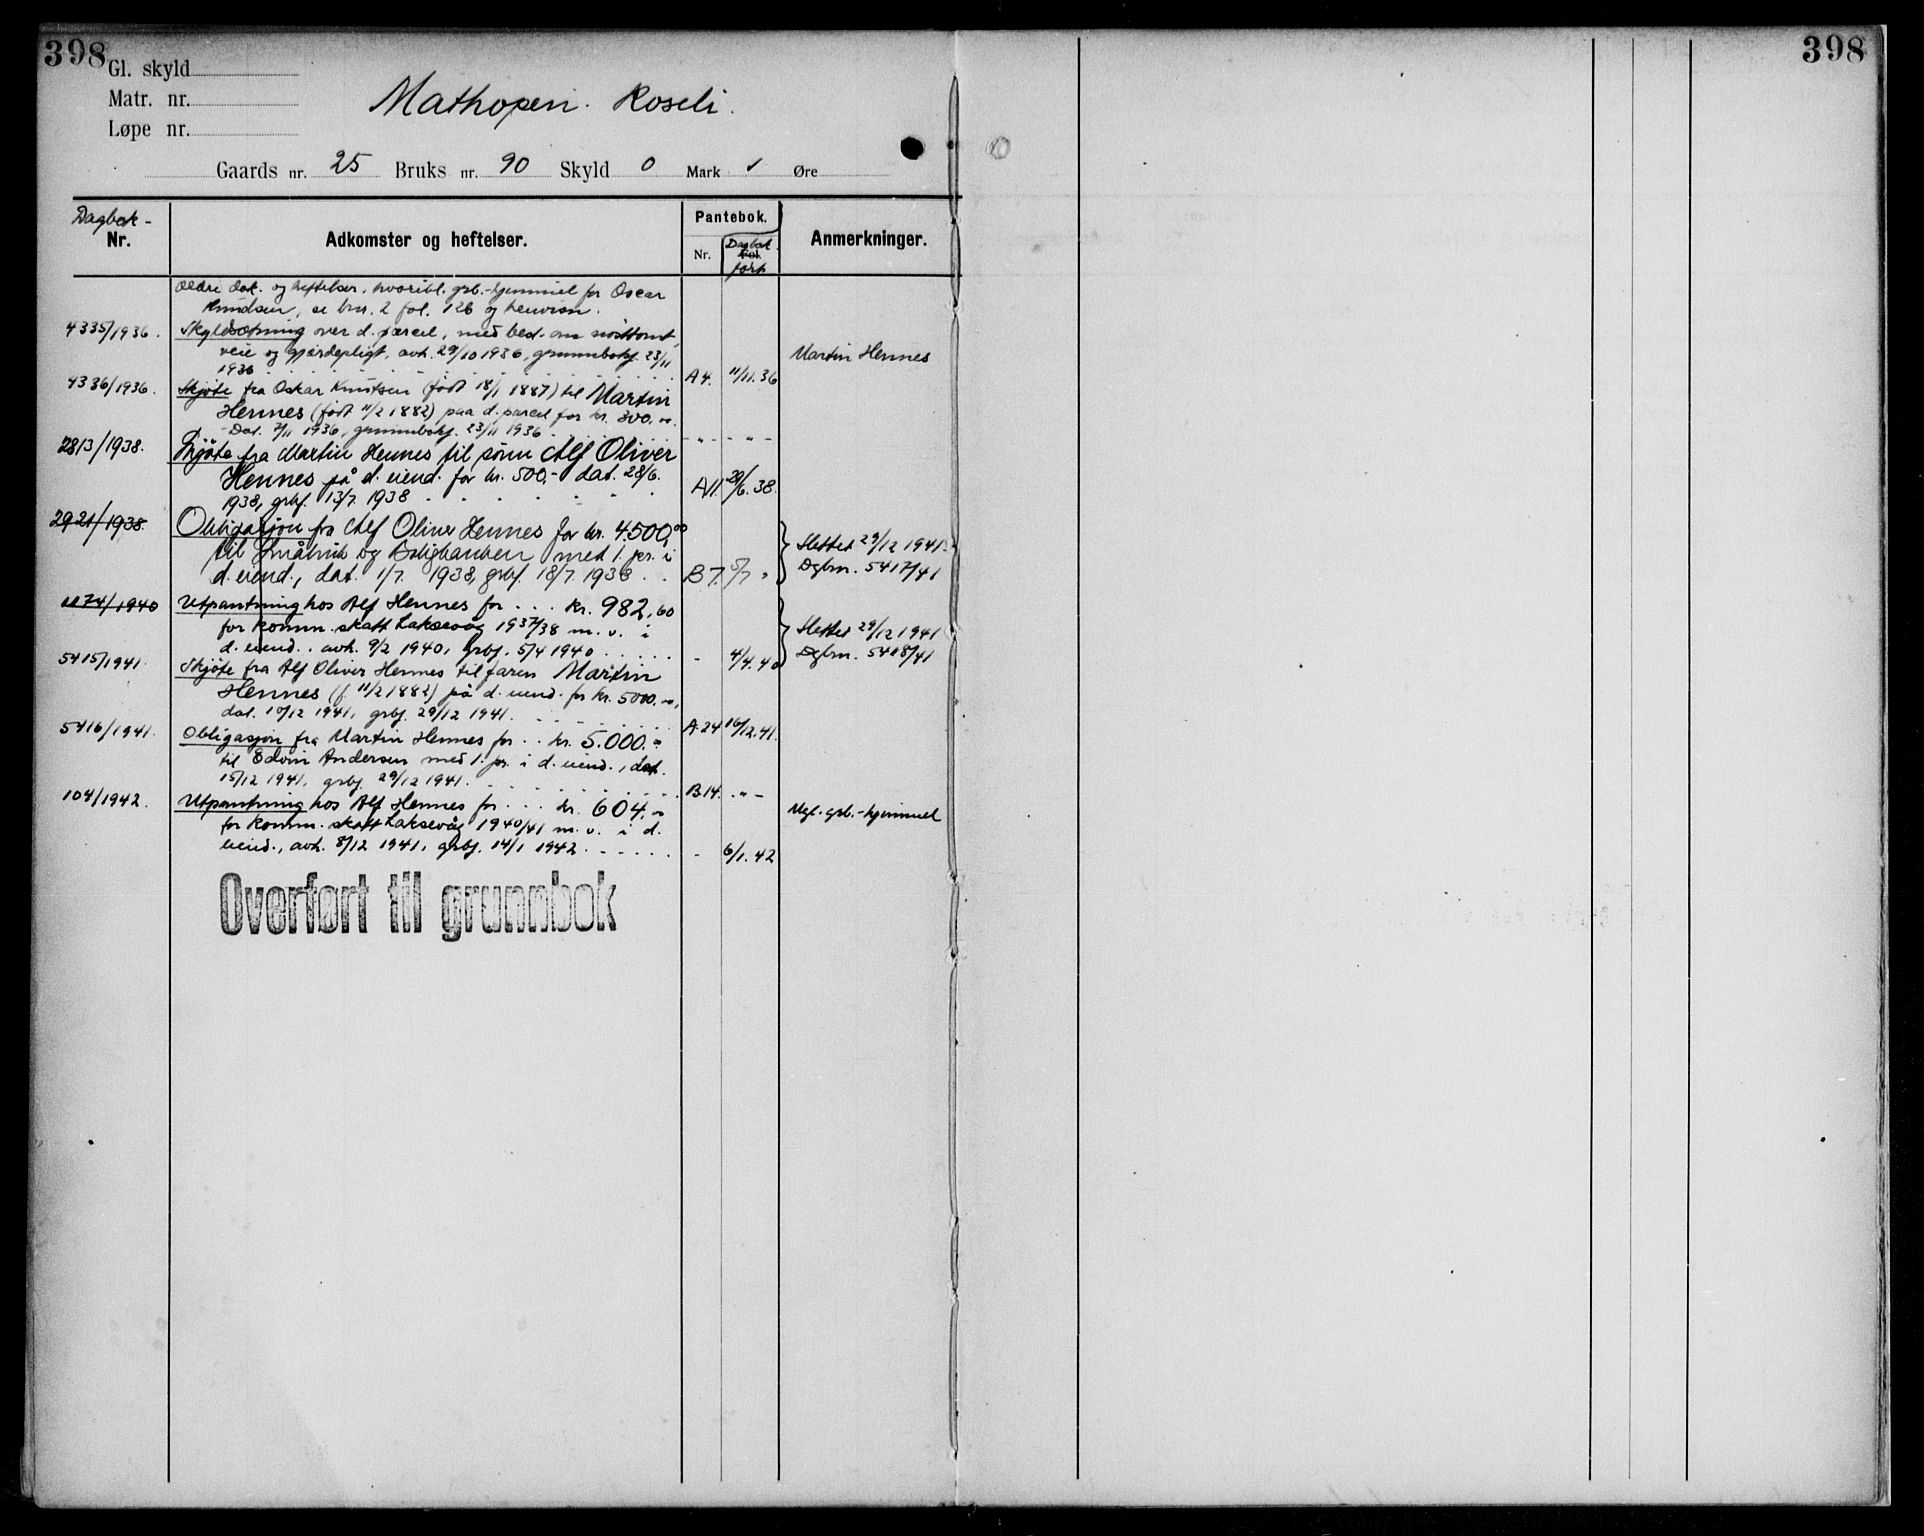 398
398
Gl. skyld
Matr. nr.
Løpe nr.
Mathopen. Roseli.
Gaards nr. 25 Bruks nr. 90 Skyld 0 Mark 1 Øre
Dagbok-
Nr.
Adkomster og heftelser.
Pantebok.
Nr.
Dagbok
Fol.
ført
Anmerkninger.
Ældre dok. og heftelser, hvoribl. grb.-hjemmel for Oscar
Knudsen, se bnr. 2 fol. 126 og henvisn.
4335/1936. Skyldsætning over d. parcel, med best. om nosttomt,
veie og gjerdepligt, avh. 29/10 1936, grunnbokf. 23/11 Martin Hennes
1936 A 4. 11/11.36
4336/1936. Skjøte fra Oskar Knutsen (født 18/1 1887) til Martin
Hennes (født 11/2 1882) paa d. parcel for kr. 300,00.
Dat. 7/11 1936, grunnbokf. 23/11 1936 - " - - " -
2813/1938. Skjøte fra Martin Hennes til sønn Alf Oliver
Hennes på d. eiend. for kr. 500,- dat. 28/6.
1938, grbf. 13/7. 1938 A 11. 29/6. 38.
2921/1938. Obligasjon fra Alf Oliver Hennes for kr. 4.500,00
til Småbruk og Boligbanken med 1. pr. i Slettet 29/12 1941.
d. eiend., dat. 1/7. 1938, grbf. 18/7. 1938 . . B 7. 5/7 " Dgbnr. 5417/41
1174/1940 Utpantning hos Alf Hennes for . . . kr. 982,60
for komm. skatt Laksevåg 1937/38 m. v. i Slettet 29/12 1941
d. eiend., avh. 9/2 1940, grbf. 5/4 1940 . . . . . - 4/4.40 Dgbnr. 5418/41
5415/1941. Skjøte fra Alf Oliver Hennes til faren Martin
Hennes (f. 11/2 1882) på d. eiend. for kr. 5000,00,
dat. 10/12 1941, grbf. 29/12 1941. A.24 16/12.41.
5416/1941. Obligasjon fra Martin Hennes for . . kr. 5.000.00
til Edvin Andersen med 1. pr. i d. eiend., dat.
15/12 1941, grbf. 29/12 1941. B.14. - " -
104/1942. Utpantning hos Alf Hennes for . . . kr. 604,00
for komm. skatt Laksevåg 1940/41 m. v. i d. Mgl. grb.-hjemmel
eiend., avh. 8/12 1941, grbf. 14/1 1942 . - . . . . . - 6/1.42
Overført til grunnbok